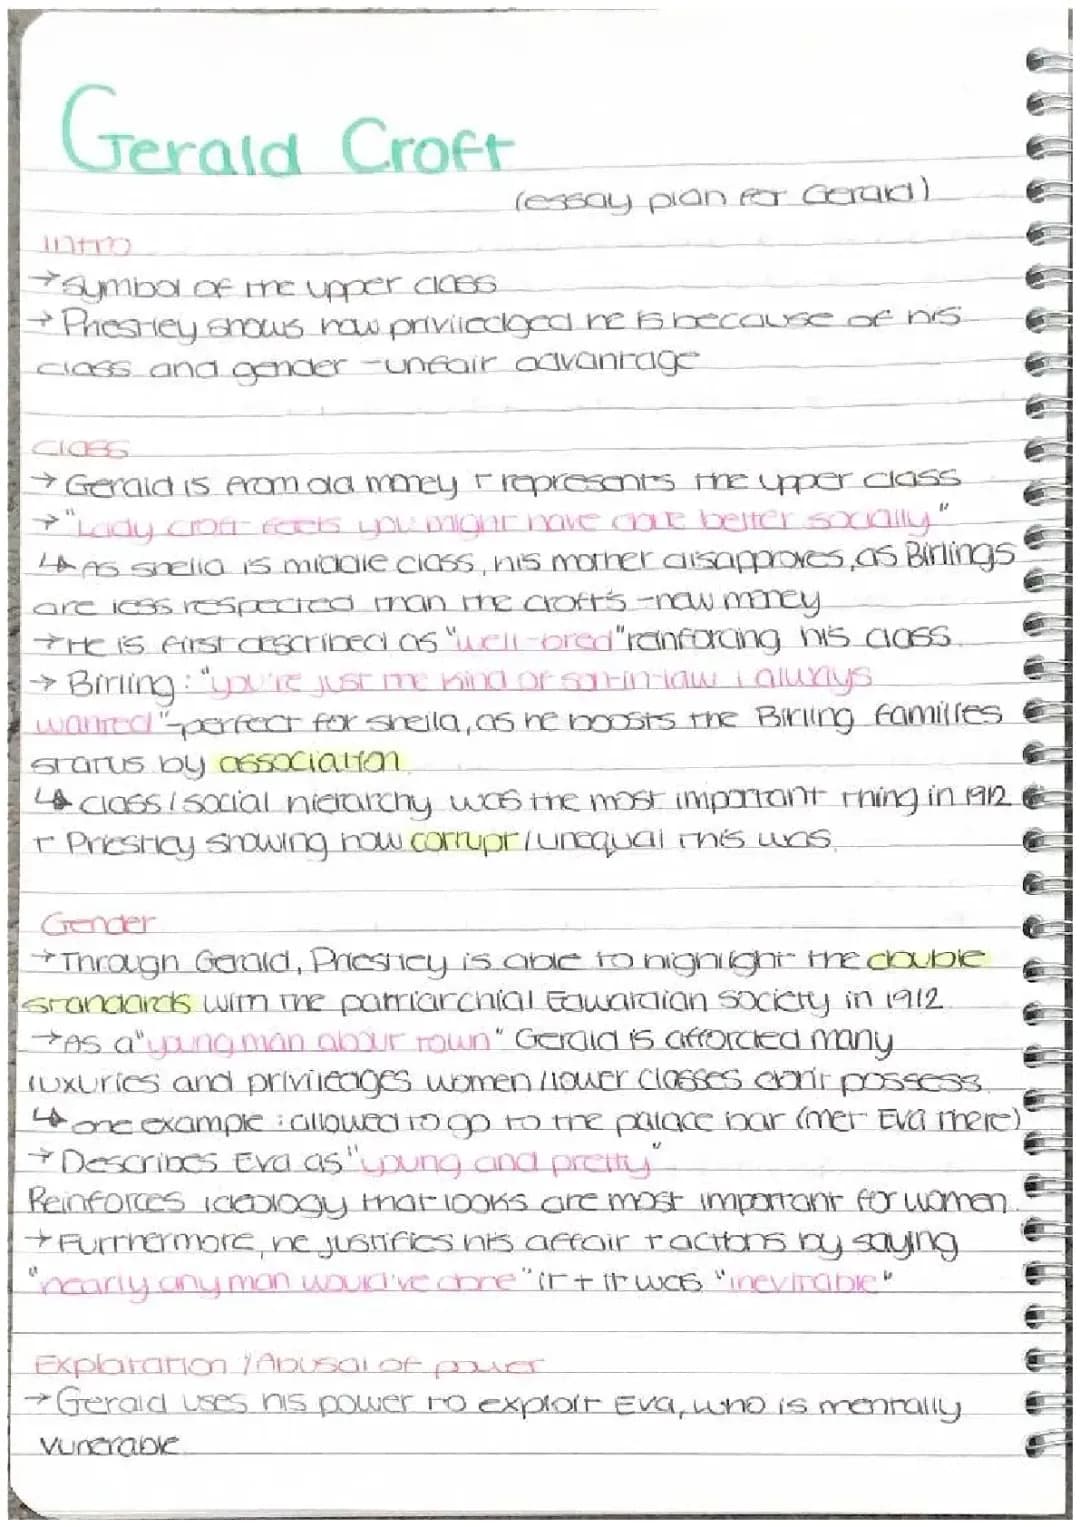 Gerald Croft
(essay plan for Gerald)
Intro
→ Symbol of the upper class
→ Priestley shows how priviledged he is because of his
class and gender - unfair advantage
Class
→ Gerald is from old money + represents the upper class
→ "Lady croft feels you might have done better socially"
↳ As sheila is middle class, his mother disapproves, as Birlings
are less respected than the croft's - new money
→ He is first described as "well-bred" reinforcing his class.
→ Birling: "you're just the kind of son-in-law i always
wanted" - perfect for sheila, as he boosts the Birling families
status by association
↳ class/social hierarchy was the most important thing in 1912
+ Priestley showing how corrupt/unequal this was.
Gender
→ Through Gerald, Priestley is able to highlight the double
standards with the patriarchial Edwardian society in 1912
→ As a "young man about town" Gerald is afforded many
luxuries and priviledges women/lower classes don't possess.
↳ one example: allowed to go to the palace bar (met Eva there)
→ Describes Eva as "young and pretty"
Reinforces ideology that looks are most important for women.
→ Furthermore, he justifies his affair + actions by saying
"nearly any man would've done" it + it was "inevitable"
Exploration / Abusal of power
→ Gerald uses his power to exploit Eva, who is mentally
vunerable